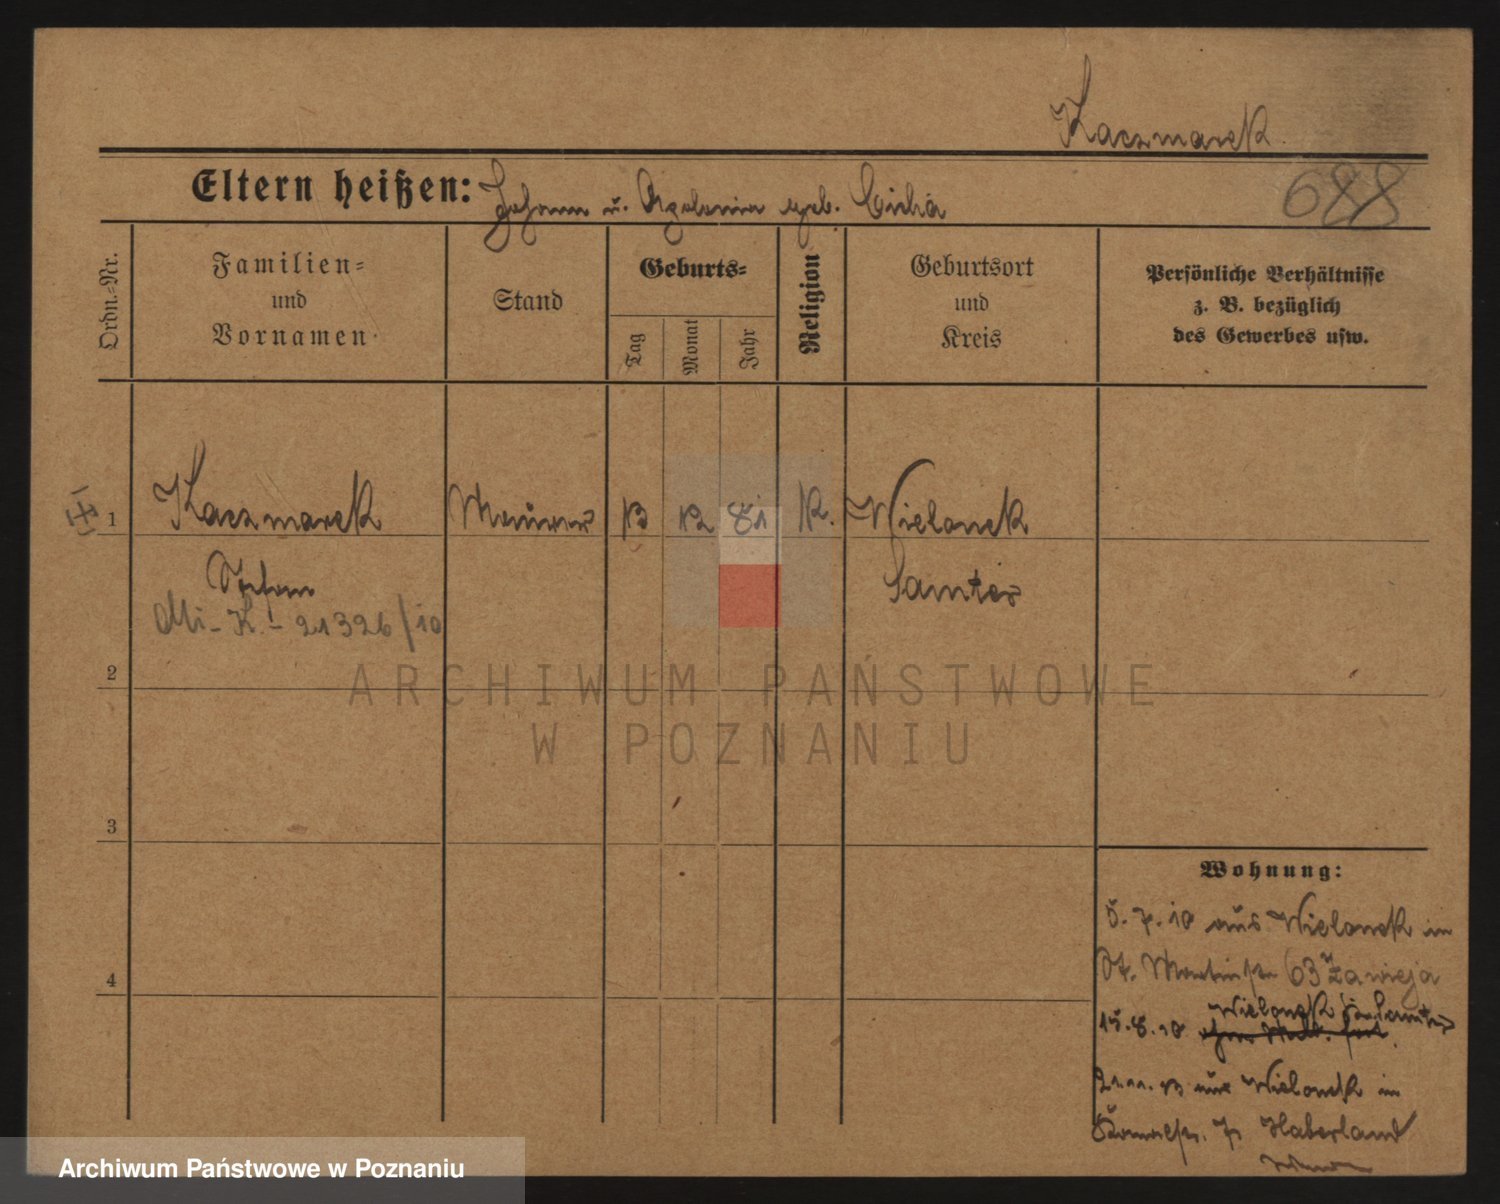 Kaczmarek
688
Eltern heißen: Johann u. Apolonia geb. Cicha
Ordn.=Nr.
Familien=
und
Vornamen
Stand
Geburts=
Tag
Monat
Jahr
Religion
Geburtsort
und
Kreis
Persönliche Verhältnisse
z. B. bezüglich
des Gewerbes usw.
1 Kaczmarek Maurer 12 81 K. Wielonek
Stefan Samter
Mi-K.-21326/10
2
ARCHIWUM PAŃSTWOWE
W POZNANIU
3
Wohnung:
5.7.10 aus Wielonek in
St. Martinstr 63 Zawieja
Wielonek Kr. Samter
15.8.10
4
21.11. aus Wielonek in
Haberland
Archiwum Państwowe w Poznaniu